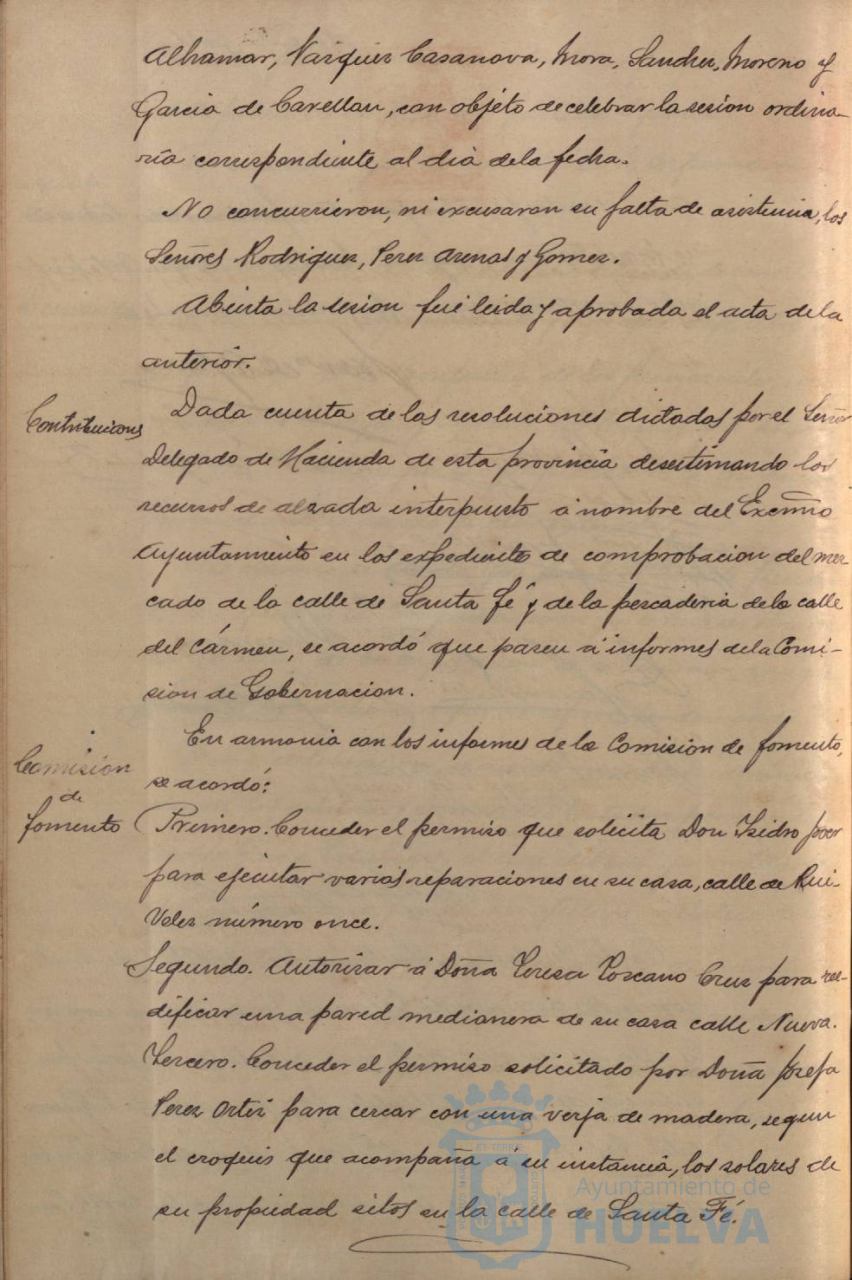 Alhamar, Vazquez Casanova, Mora, Sanchez, Moreno y
Garcia de Carellan, con objeto de celebrar la sesion ordina-
ria correspondiente al dia de la fecha.
No concurrieron, ni excusaron su falta de asistencia, los
Señores Rodriguez, Perez Arenas y Gomez.
Abierta la sesion fué leida y aprobada el acta de la
anterior.
Contribuciones
Dada cuenta de las resoluciones dictadas por el Señor
Delegado de Hacienda de esta provincia desestimando los
recursos de alzada interpuesto á nombre del Excmo
Ayuntamiento en los expediente de comprobacion del mer-
cado de la calle de Santa Fé y de la pescaderia de la calle
del Cármen, se acordó que pasen á informes de la Comi-
sion de Gobernacion.
Comisión
de
fomento
En armonia con los informes de la Comision de fomento,
se acordó:
Primero. Conceder el permiso que solicita Don Isidro
para ejecutar varias reparaciones en su casa, calle de Rui-
Velez número once.
Segundo. Autorizar á Doña Teresa Toscano Cruz para ree-
dificar una pared medianera de su casa calle Nueva.
Tercero. Conceder el permiso solicitado por Doña Josefa
Perez Ortiz para cercar con una verja de madera, segun
el croquis que acompaña á su instancia, los solares de
su propiedad sitos en la calle de Santa Fé.
Ayuntamiento de
HUELVA